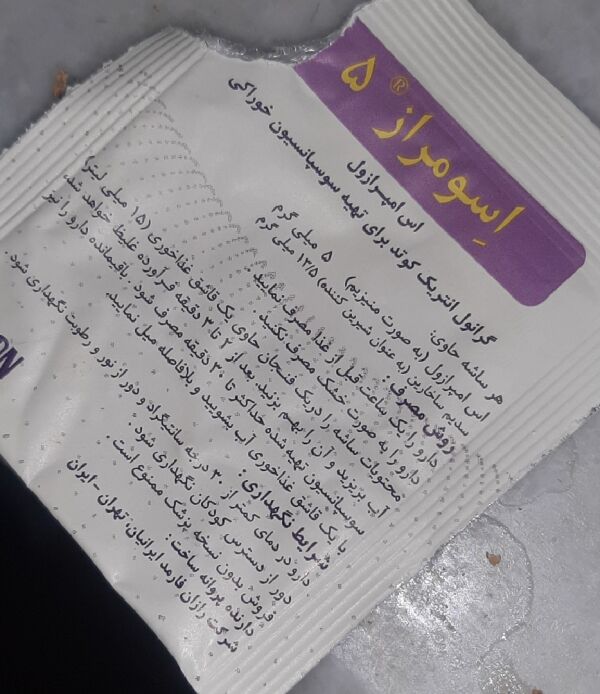 اِسومراز® ۵
اس امپرازول
گرانول انتریک کوتد برای تهیه سوسپانسیون خوراکی
هر ساشه حاوی:
اس امپرازول (به صورت منیزیم) ۵ میلی گرم
سدیم ساخارین (به عنوان شیرین کننده) ۱۳/۵ میلی گرم
روش مصرف:
دارو را یک ساعت قبل از غذا مصرف نمایید.
دارو را به صورت خشک مصرف نکنید.
محتویات ساشه را در یک فنجان حاوی یک قاشق غذاخوری (۱۵ میلی لیتر)
آب بریزید و آن را بهم بزنید. بعد از ۲ تا ۳ دقیقه فرآورده غلیظ خواهد شد،
سوسپانسیون تهیه شده حداکثر تا ۳۰ دقیقه مصرف شود. باقیمانده دارو را نیز
با یک قاشق غذاخوری آب بشویید و بلافاصله میل نمایید.
شرایط نگهداری:
دارو در دمای کمتر از ۳۰ درجه سانتیگراد و دور از نور و رطوبت نگهداری شود.
دور از دسترس کودکان نگهداری شود.
فروش بدون نسخه پزشک ممنوع است.
دارنده پروانه ساخت:
شرکت رازان فارمد ایرانیان، تهران - ایران